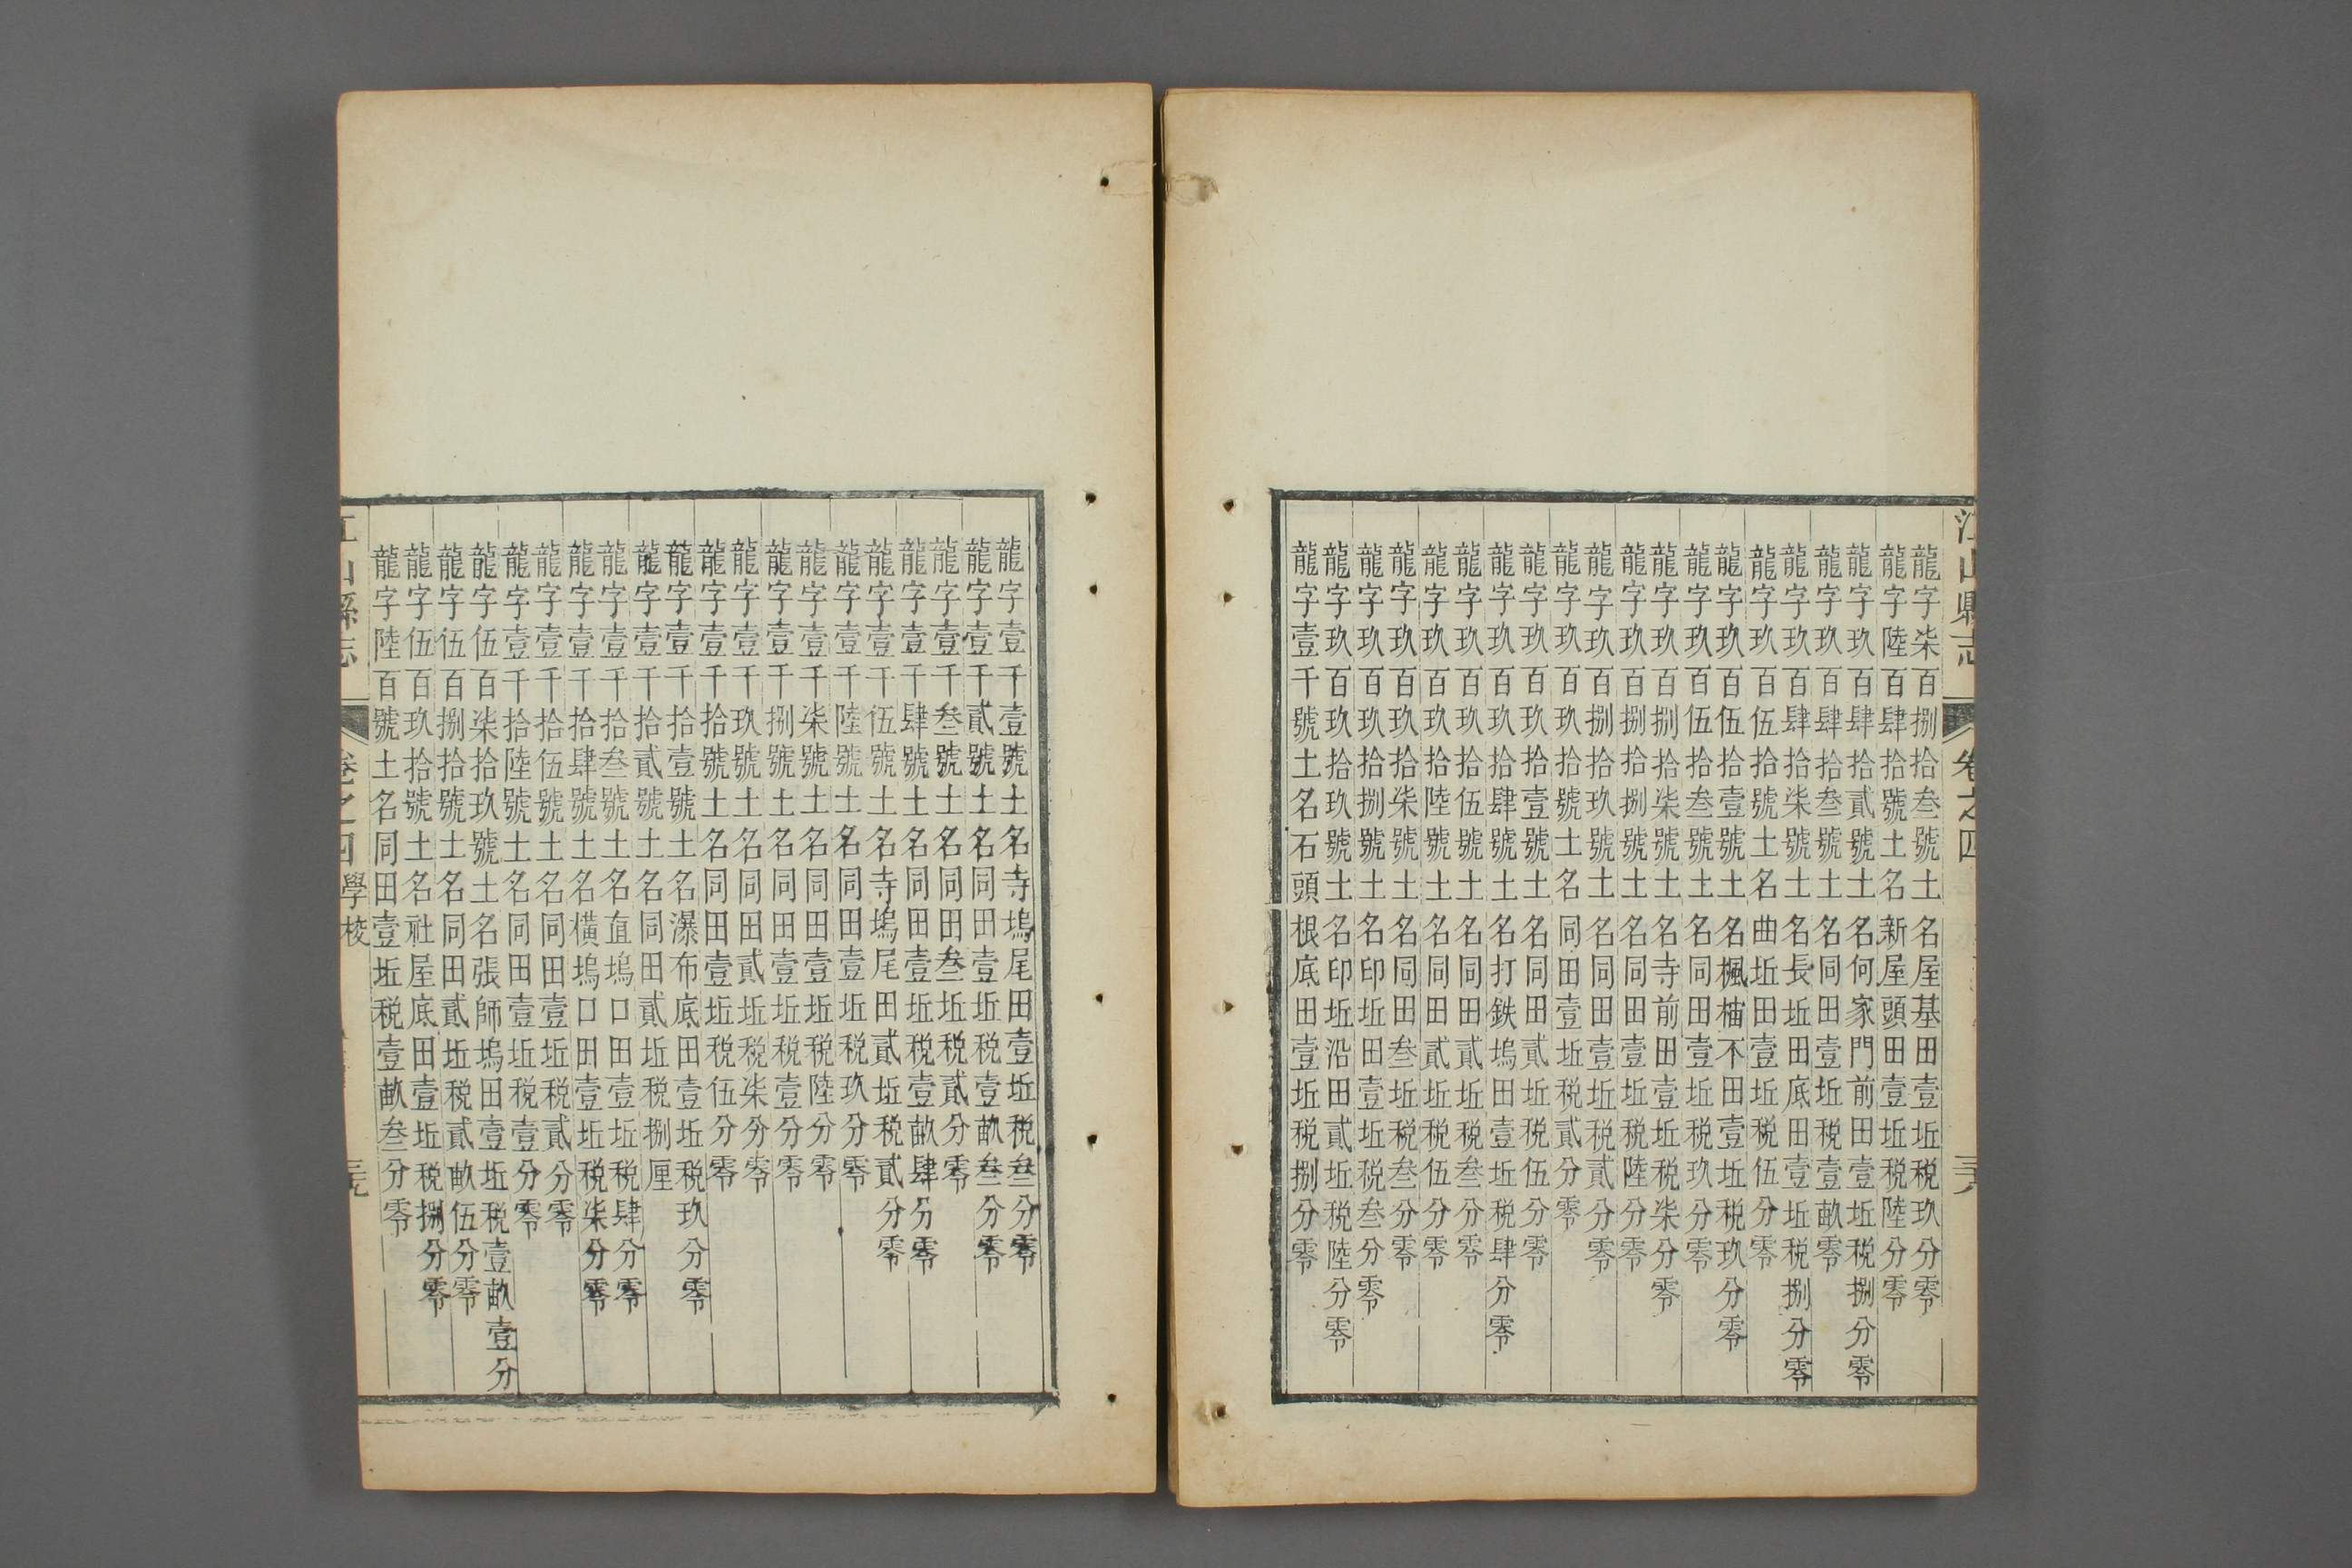 江山縣志
卷之四
三十八
龍字柒百捌拾叁號土名屋基田壹坵税玖分零
龍字陸百肆拾號土名新屋頭田壹坵税陸分零
龍字玖百肆拾貳號土名何家門前田壹坵税捌分零
龍字玖百肆拾叁號土名同田壹坵税壹畝零
龍字玖百肆拾柒號土名長坵田底田壹坵税捌分零
龍字玖百伍拾號土名曲坵田壹坵税伍分零
龍字玖百伍拾壹號土名楓楠不田壹坵税玖分零
龍字玖百伍拾叁號土名同田壹坵税玖分零
龍字玖百捌拾柒號土名寺前田壹坵税柒分零
龍字玖百捌拾捌號土名同田壹坵税陸分零
龍字玖百捌拾玖號土名同田壹坵税貳分零
龍字玖百玖拾號土名同田壹坵税貳分零
龍字玖百玖拾壹號土名同田貳坵税伍分零
龍字玖百玖拾肆號土名打鉄塢田壹坵税肆分零
龍字玖百玖拾伍號土名同田貳坵税叁分零
龍字玖百玖拾陸號土名同田貳坵税伍分零
龍字玖百玖拾柒號土名同田叁坵税叁分零
龍字玖百玖拾捌號土名印坵田壹坵税叁分零
龍字玖百玖拾玖號土名印坵沿田貳坵税陸分零
龍字壹千號土名石頭根底田壹坵税捌分零
龍字壹千壹號土名寺塢尾田壹坵税叁分零
龍字壹千貳號土名同田壹坵税壹畝叁分零
龍字壹千叁號土名同田叁坵税貳分零
龍字壹千肆號土名同田壹坵税壹畝肆分零
龍字壹千伍號土名寺塢尾田貳坵税貳分零
龍字壹千陸號土名同田壹坵税玖分零
龍字壹千柒號土名同田壹坵税陸分零
龍字壹千捌號土名同田壹坵税壹分零
龍字壹千玖號土名同田貳坵税柒分零
龍字壹千拾號土名同田壹坵税伍分零
龍字壹千拾壹號土名瀑布底田壹坵税玖分零
龍字壹千拾貳號土名同田貳坵税捌厘
龍字壹千拾叁號土名直塢口田壹坵税肆分零
龍字壹千拾肆號土名橫塢口田壹坵税柒分零
龍字壹千拾伍號土名同田壹坵税貳分零
龍字壹千拾陸號土名同田壹坵税壹分零
龍字伍百柒拾玖號土名張師塢田壹坵税壹畝壹分
龍字伍百捌拾號土名同田貳坵税貳畝伍分零
龍字伍百玖拾號土名社屋底田壹坵税捌分零
龍字陸百號土名同田壹坵税壹畝叁分零
江山縣志
卷之四
學校
三十九